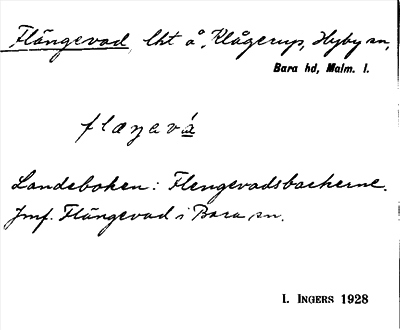 Flängevad, lht å, Klågerup, Hyby sn,
Bara hd, Malm. l.
flæŋavá
Landeboken: Flengevadsbackerne.
Jmf. Flängevad i Bara sn.
I. INGERS 1928